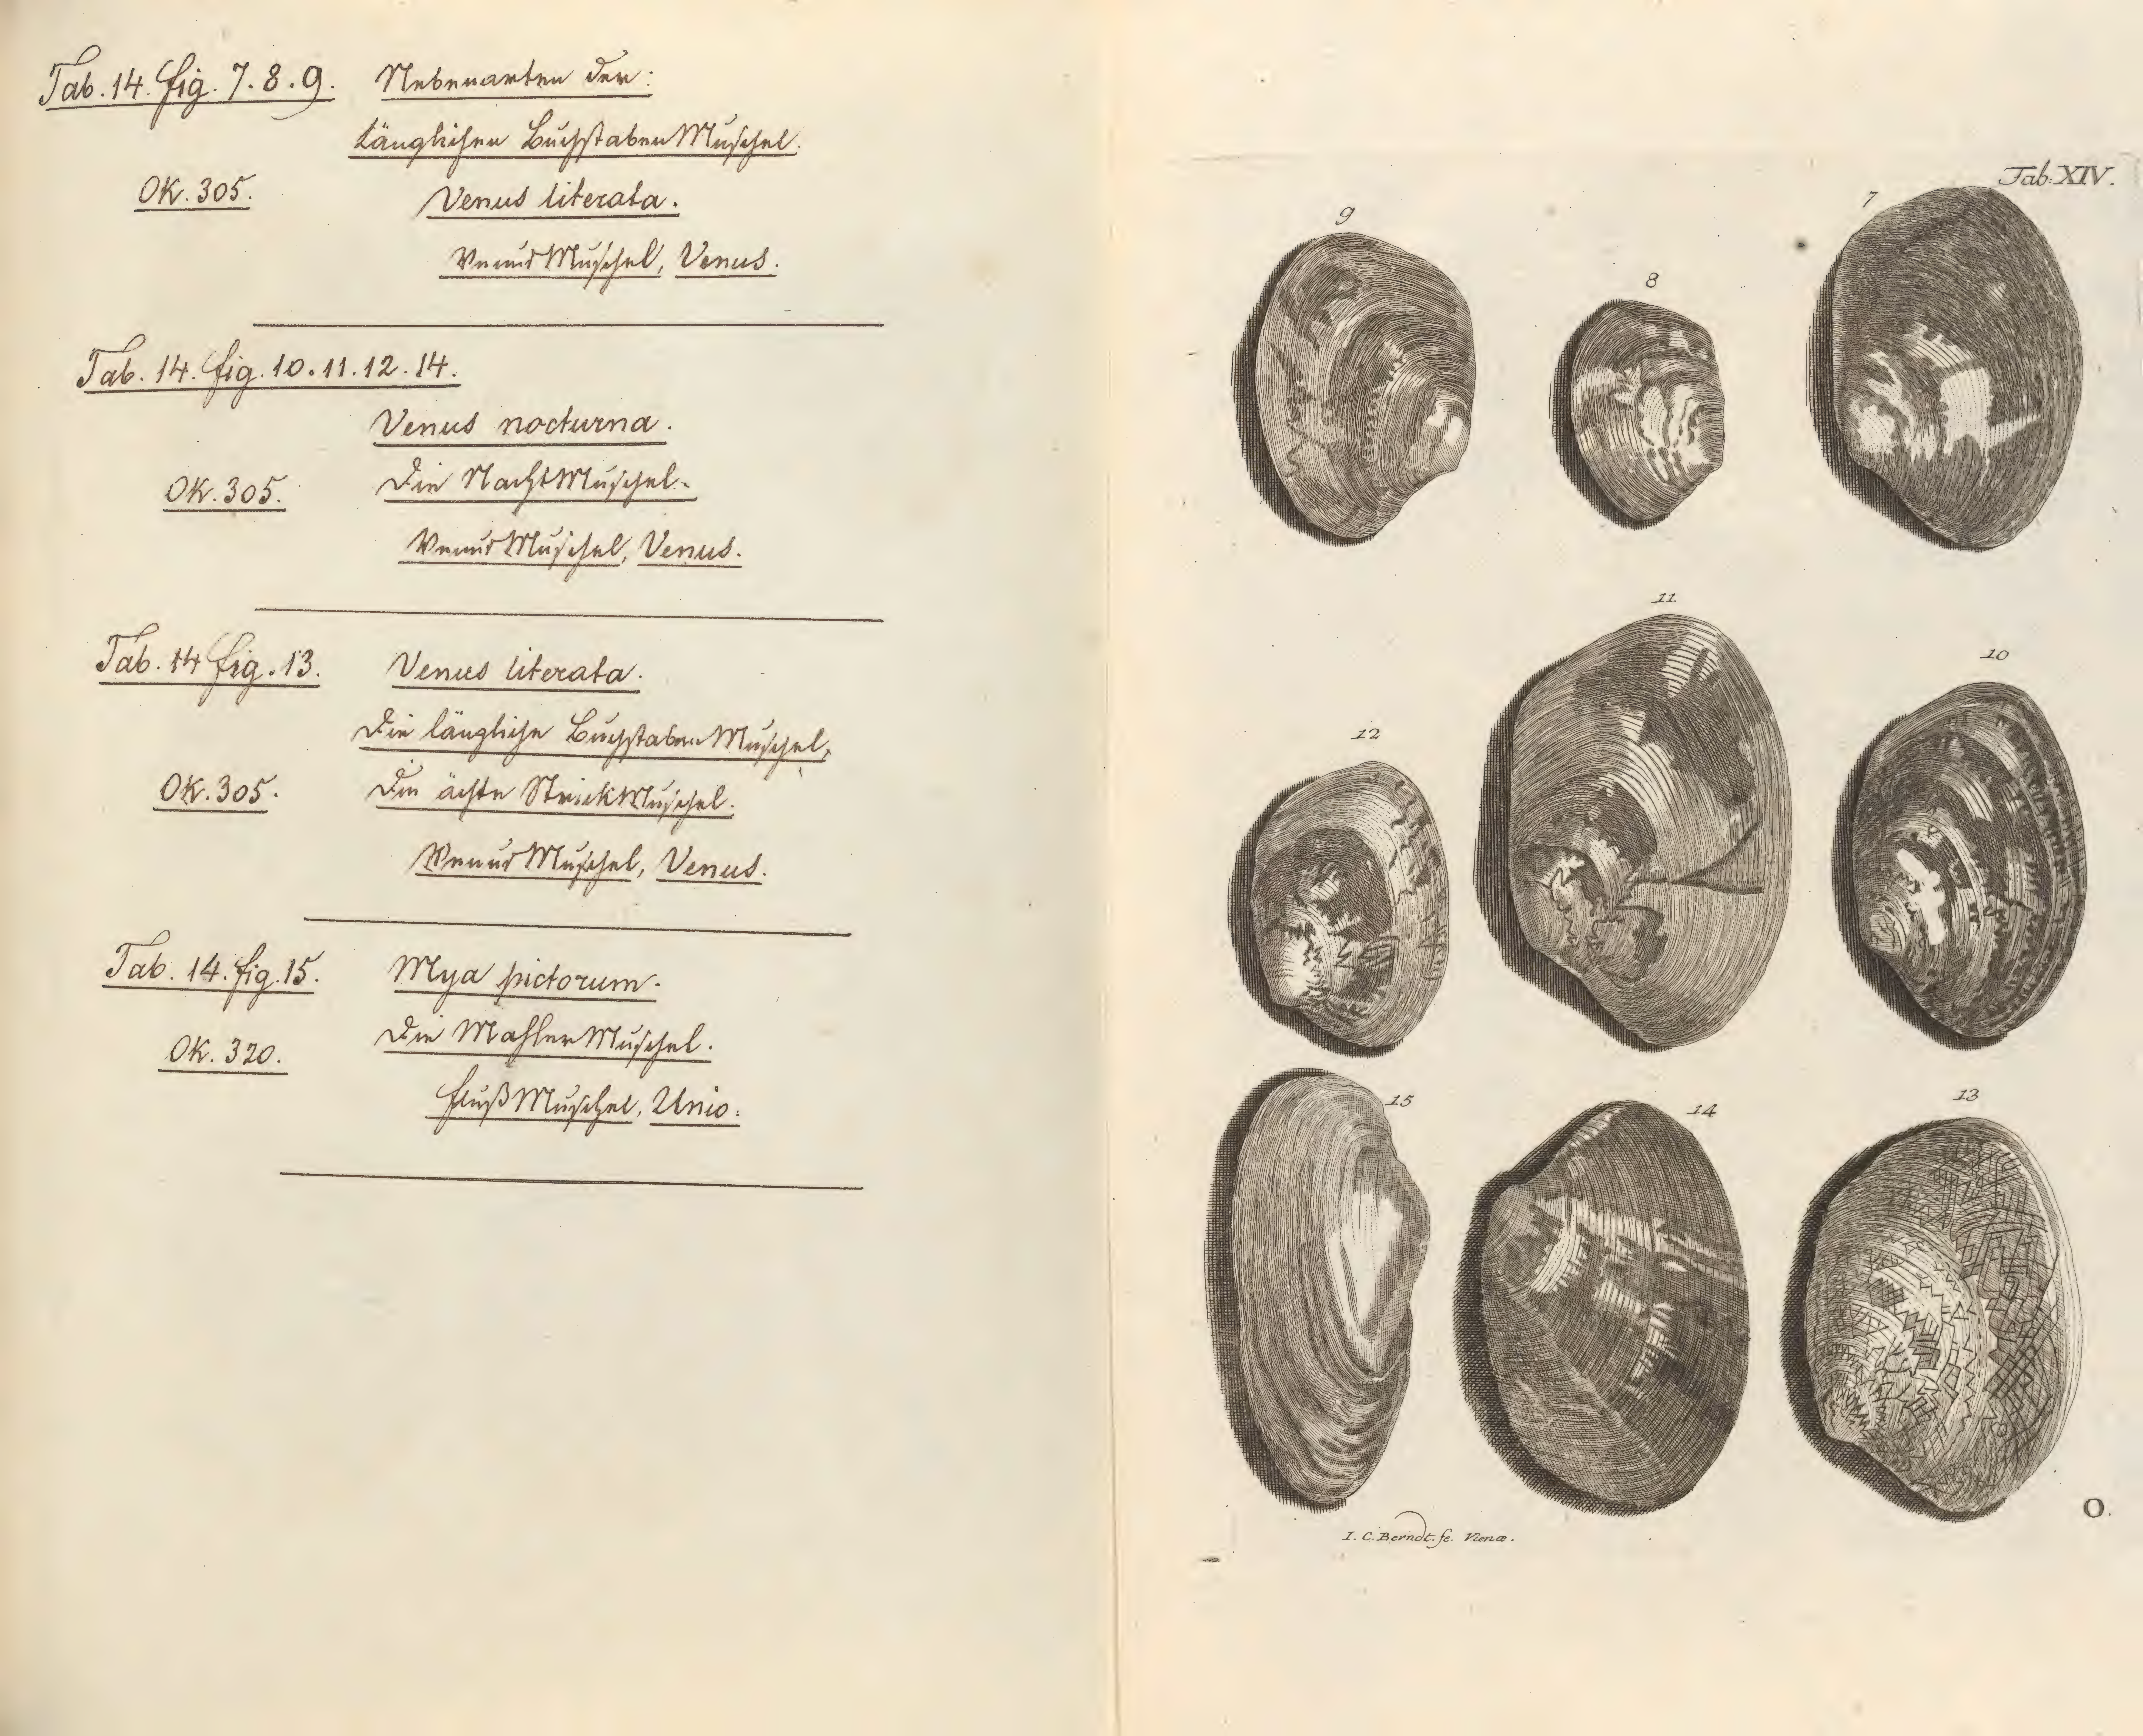 Tab. 14. fig. 7. 8. 9. Nebenarten der:
länglichen BuchstabenMuschel.
OK. 305. Venus literata.
VenusMuschel, Venus.
Tab. 14. fig. 10. 11. 12. 14.
Venus nocturna.
OK. 305. Die NachtMuschel.
VenusMuschel, Venus.
Tab. 14 fig. 13. Venus literata.
Die längliche BuchstabenMuschel,
OK. 305. Die ächte StrickMuschel.
VenusMuschel, Venus.
Tab. 14. fig. 15. Mya pictorum.
OK. 320. Die MahlerMuschel.
FlußMuschel, Unio.
Tab: XIV.
9
8
7
12
11
10
15
14
13
I. C. Berndt. fe. Vienæ.
O.